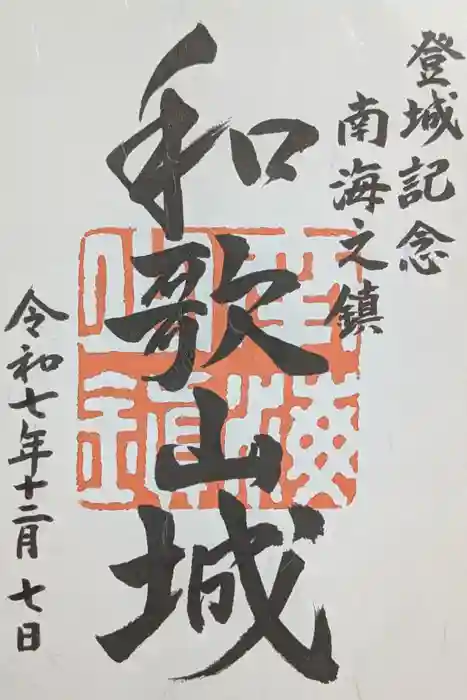 登城記念
南海之鎮
和歌山城
令和七年十二月七日